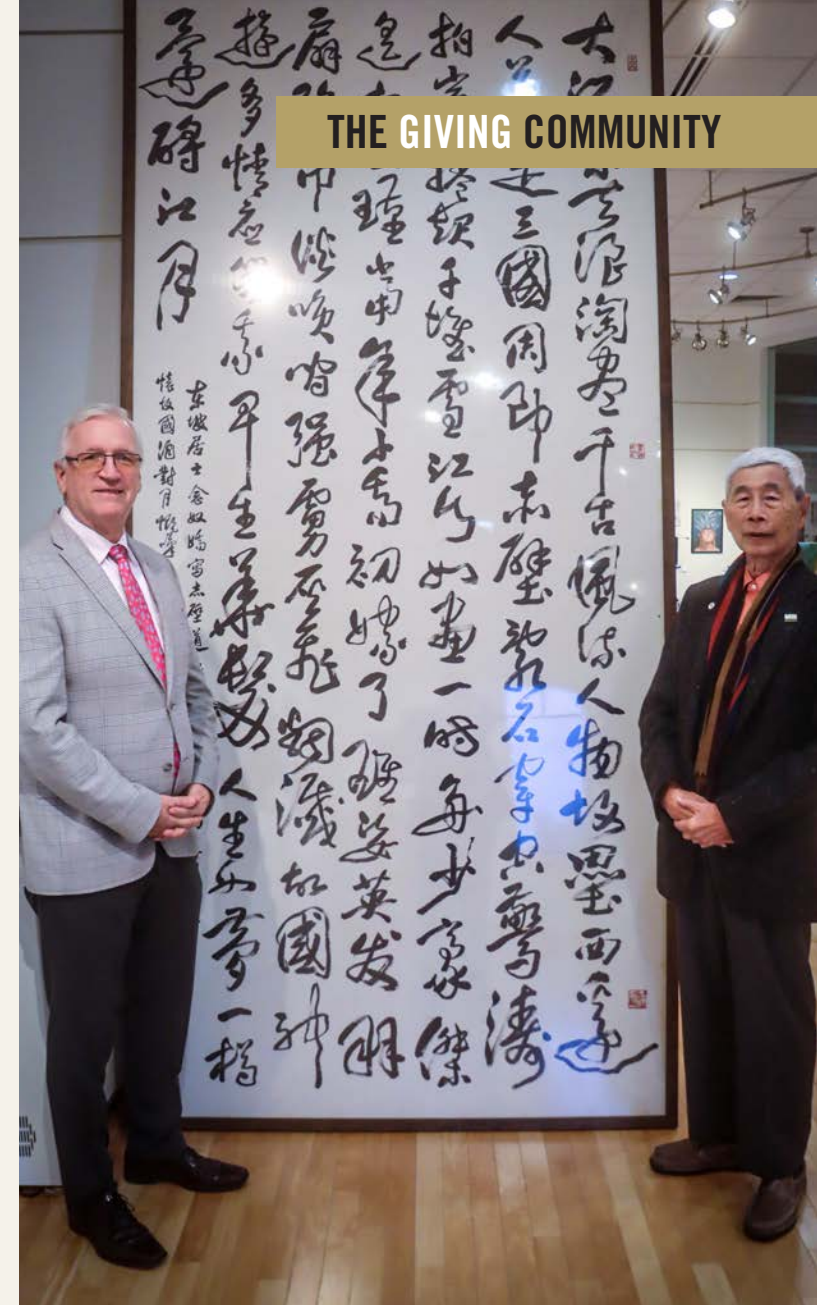 THE GIVING COMMUNITY
大江去浪淘盡千古風流人物故壘西邊
人道是三國周郎赤壁亂石穿空驚濤
拍岸捲起千堆雪江山如畫一時多少豪傑
遙瑾當年小喬初嫁了雄姿英发羽
扇巾談笑間强虜灰飛烟滅故國神
遊多情应笑我早生華髮人生如夢一樽
還酹江月
东坡居士念奴嬌寫赤壁道
懷故國酒對月慨